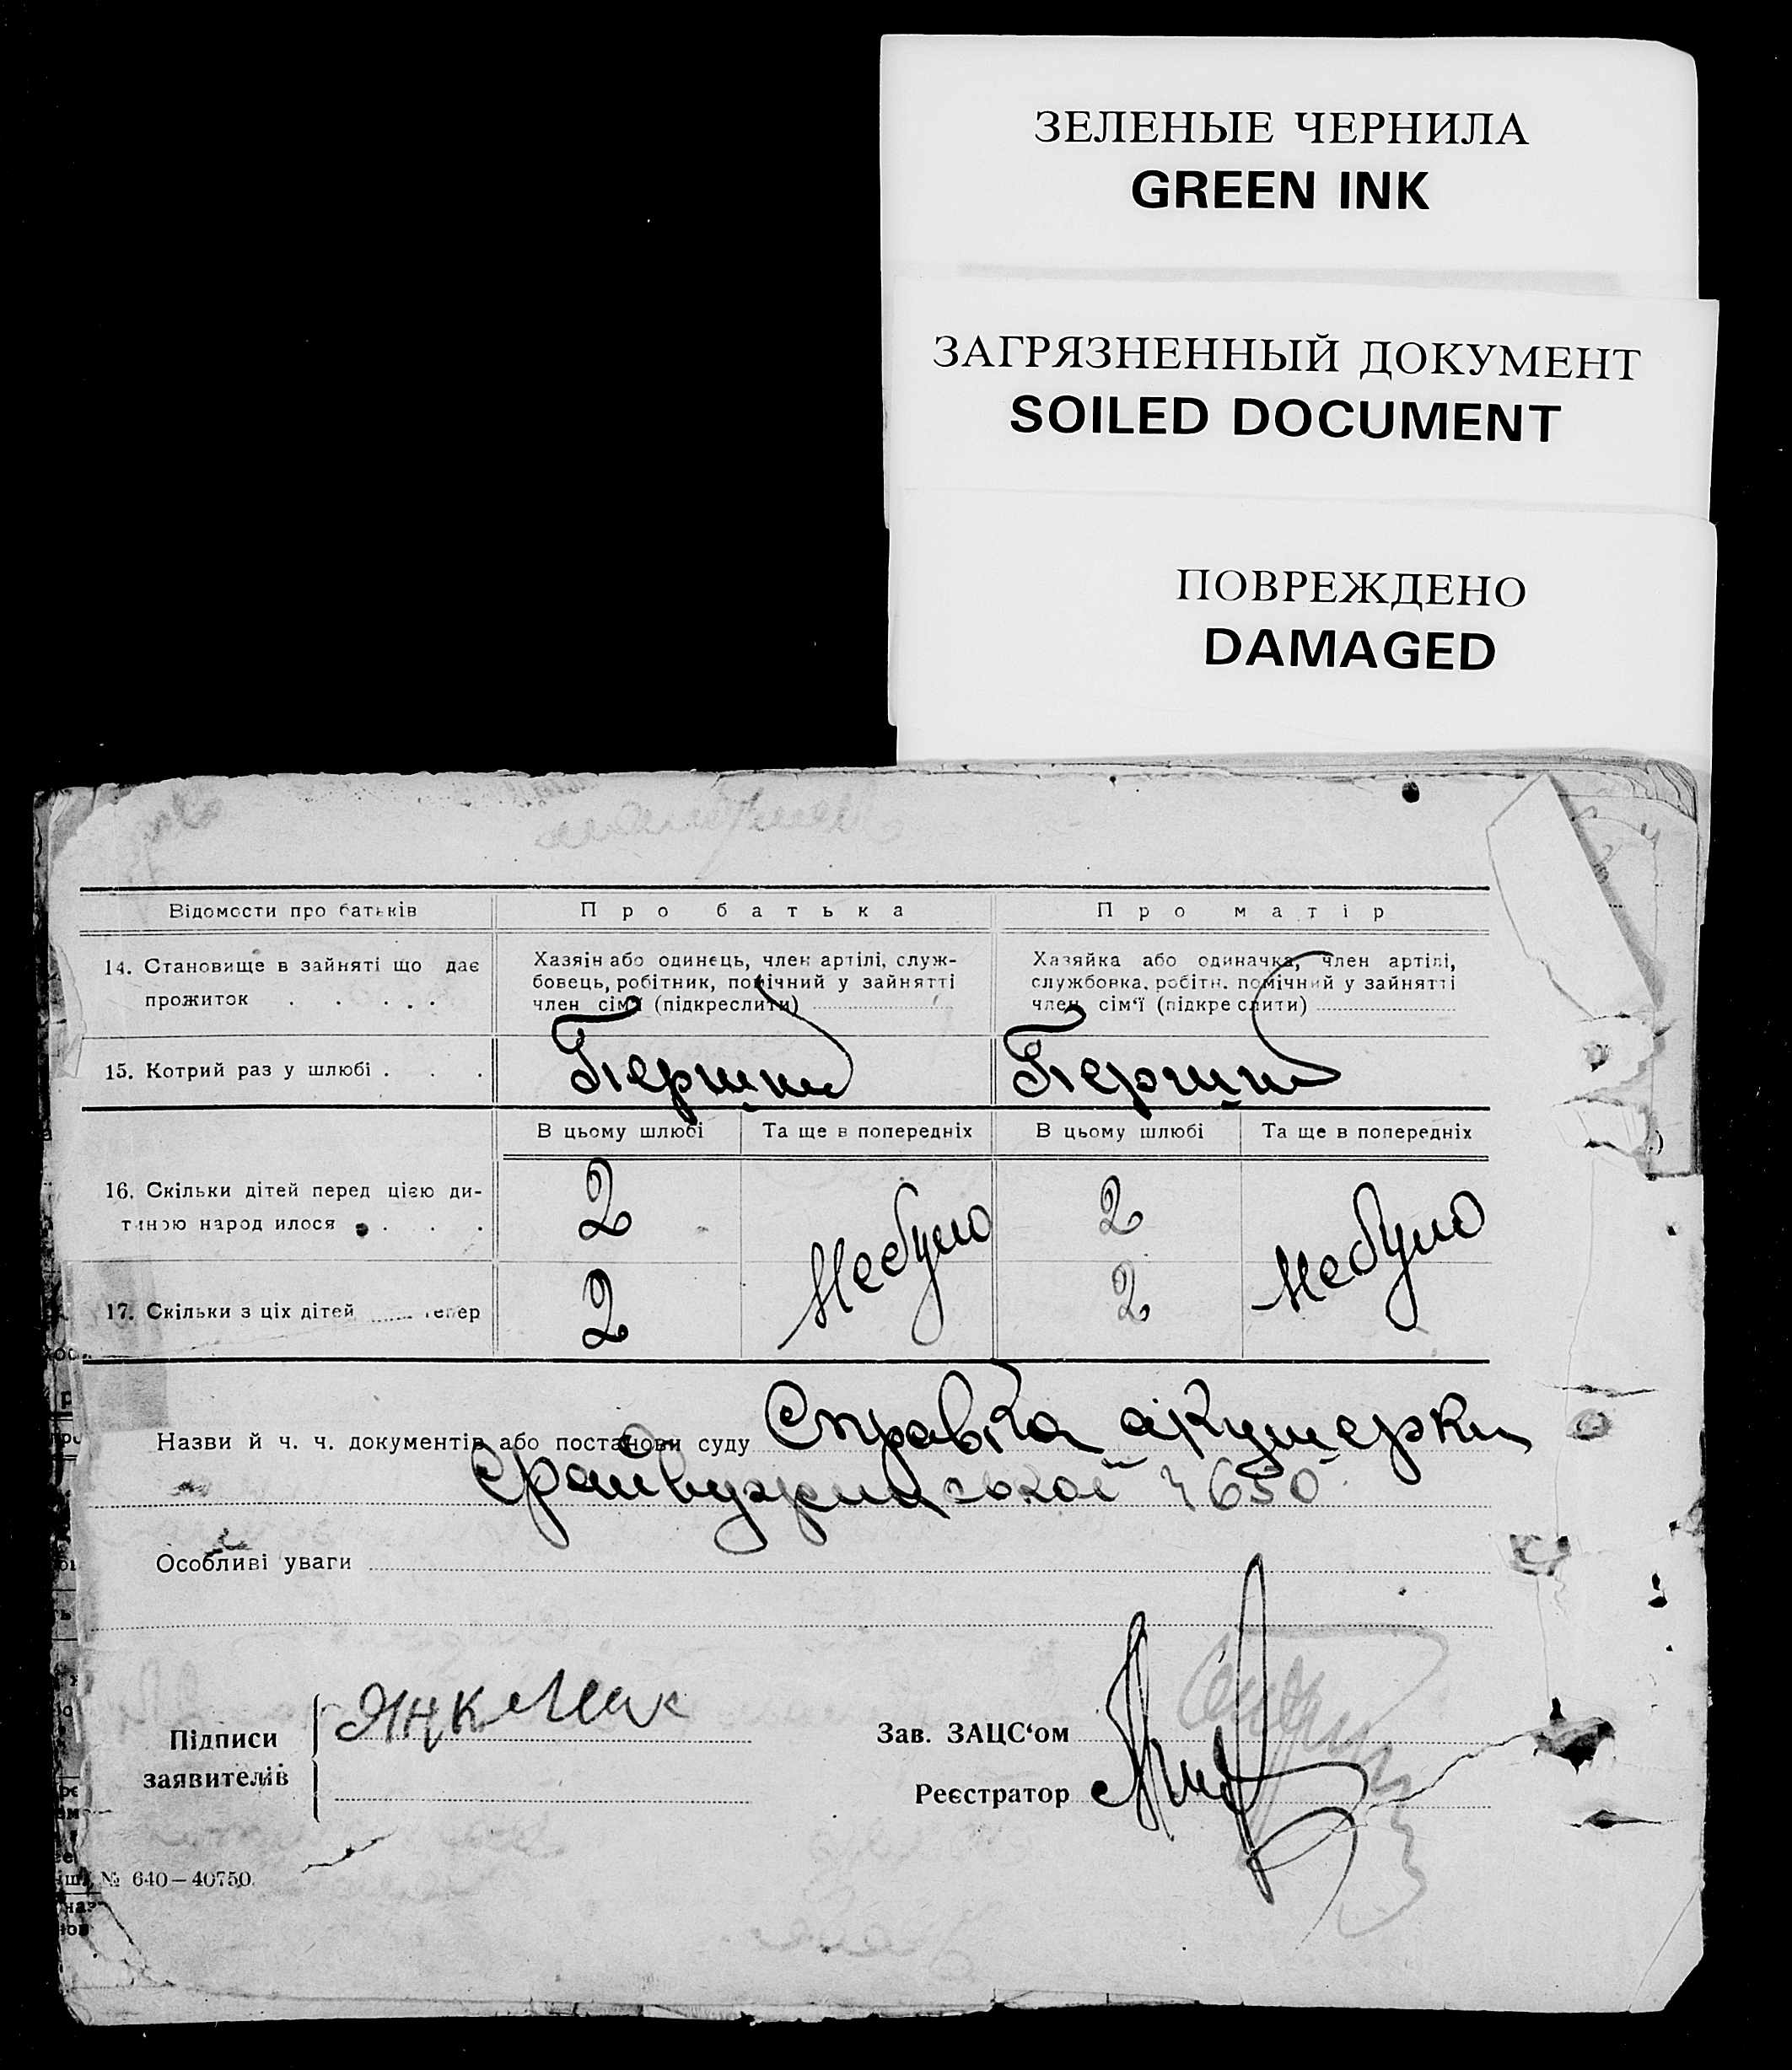 ЗЕЛЕНЫЕ ЧЕРНИЛА
GREEN INK
ЗАГРЯЗНЕННЫЙ ДОКУМЕНТ
SOILED DOCUMENT
ПОВРЕЖДЕНО
DAMAGED
Відомости про батьків
Про батька
Про матір
14. Становище в зайняті що дає
прожиток . . . . .
Хазяїн або одинець, член артілі, служ-
бовець, робітник, помічний у зайнятті
член сім'ї (підкреслити)
Хазяйка або одиначка, член артілі,
службовка, робітн. помічний у зайнятті
член сім'ї (підкреслити)
15. Котрий раз у шлюбі . . .
Перший
Перший
В цьому шлюбі
Та ще в попередніх
В цьому шлюбі
Та ще в попередніх
16. Скільки дітей перед цією ди-
тиною народилося . . . .
2
Не було
2
Не було
17. Скільки з ціх дітей ...... тепер
2
2
Назви й ч. ч. документів або постанови суду Справка акушерки
ч 650
Особливі уваги
Підписи
заявителів
Зав. ЗАЦС'ом
Реєстратор
№ 640—40750.